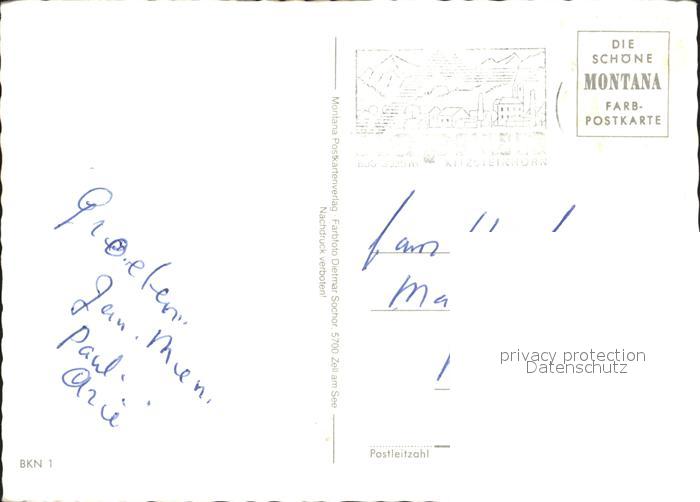 DIE
SCHÖNE
MONTANA
FARB-
POSTKARTE
KITZSTEINHORN
Montana Postkartenverlag · Farbfoto Dietmar Sochor, 5700 Zell am See
Nachdruck verboten!
Groeten.
Jan. Mien.
Paul.
Arie
fam
Ma
privacy protection
Datenschutz
Postleitzahl
BKN 1